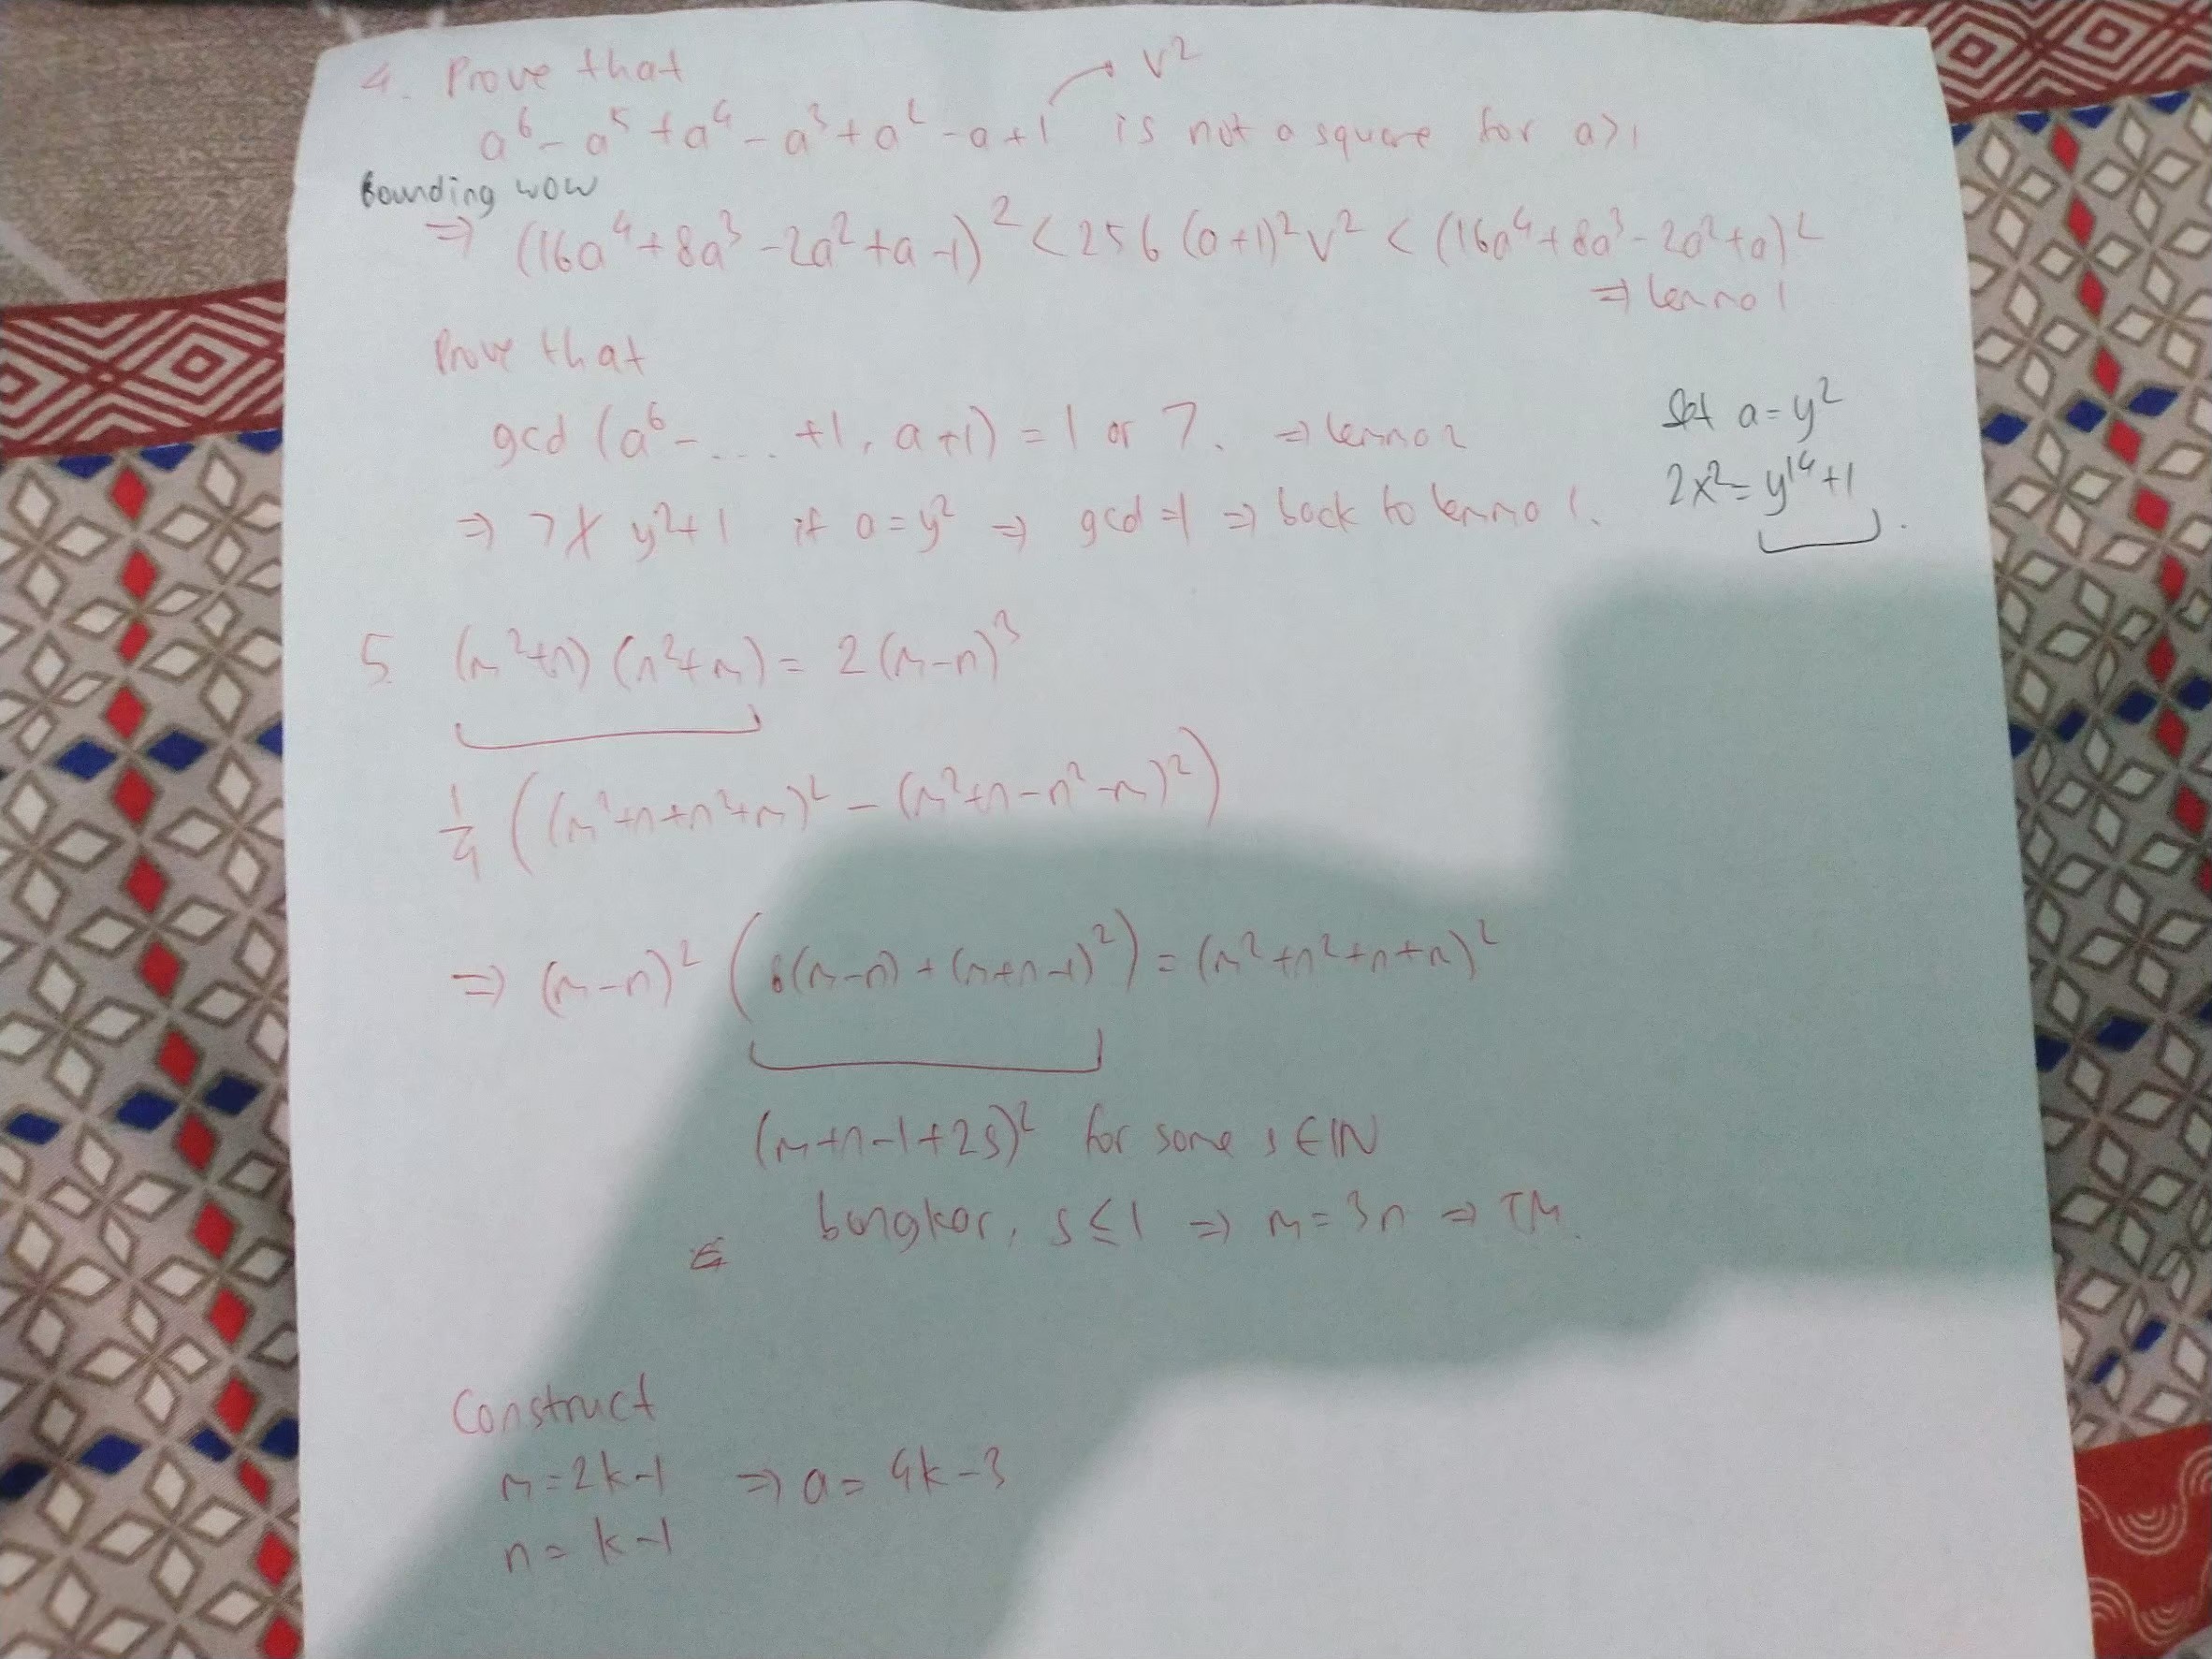 4. Prove that
a⁶ - a⁵ + a⁴ - a³ + a² - a + 1 → v² is not a square for a>1
Bounding wow
⇒ (16a⁴ + 8a³ - 2a² + a - 1)² < 256 (a+1)² v² < (16a⁴ + 8a³ - 2a² + a)²
⇒ lemma 1
Prove that
gcd (a⁶ - ... +1, a+1) = 1 or 7. ⇒ lemma 2
⇒ 7 ∤ y²+1 if a = y² ⇒ gcd = 1 ⇒ back to lemma 1.
Set a = y²
2x² = y¹⁴ + 1.
5. (m²+n) (n²+m) = 2 (m-n)³
1/4 ((m²+n+n²+m)² - (m²+n-n²-m)²)
⇒ (m-n)² (8(m-n) + (m+n-1)²) = (m²+n²+n+m)²
(m+n-1+2s)² for some s ∈ ℕ
bongkar, s ≤ 1 ⇒ m = 3n ⇒ TM.
Construct
m = 2k-1 ⇒ a = 4k-3
n = k-1